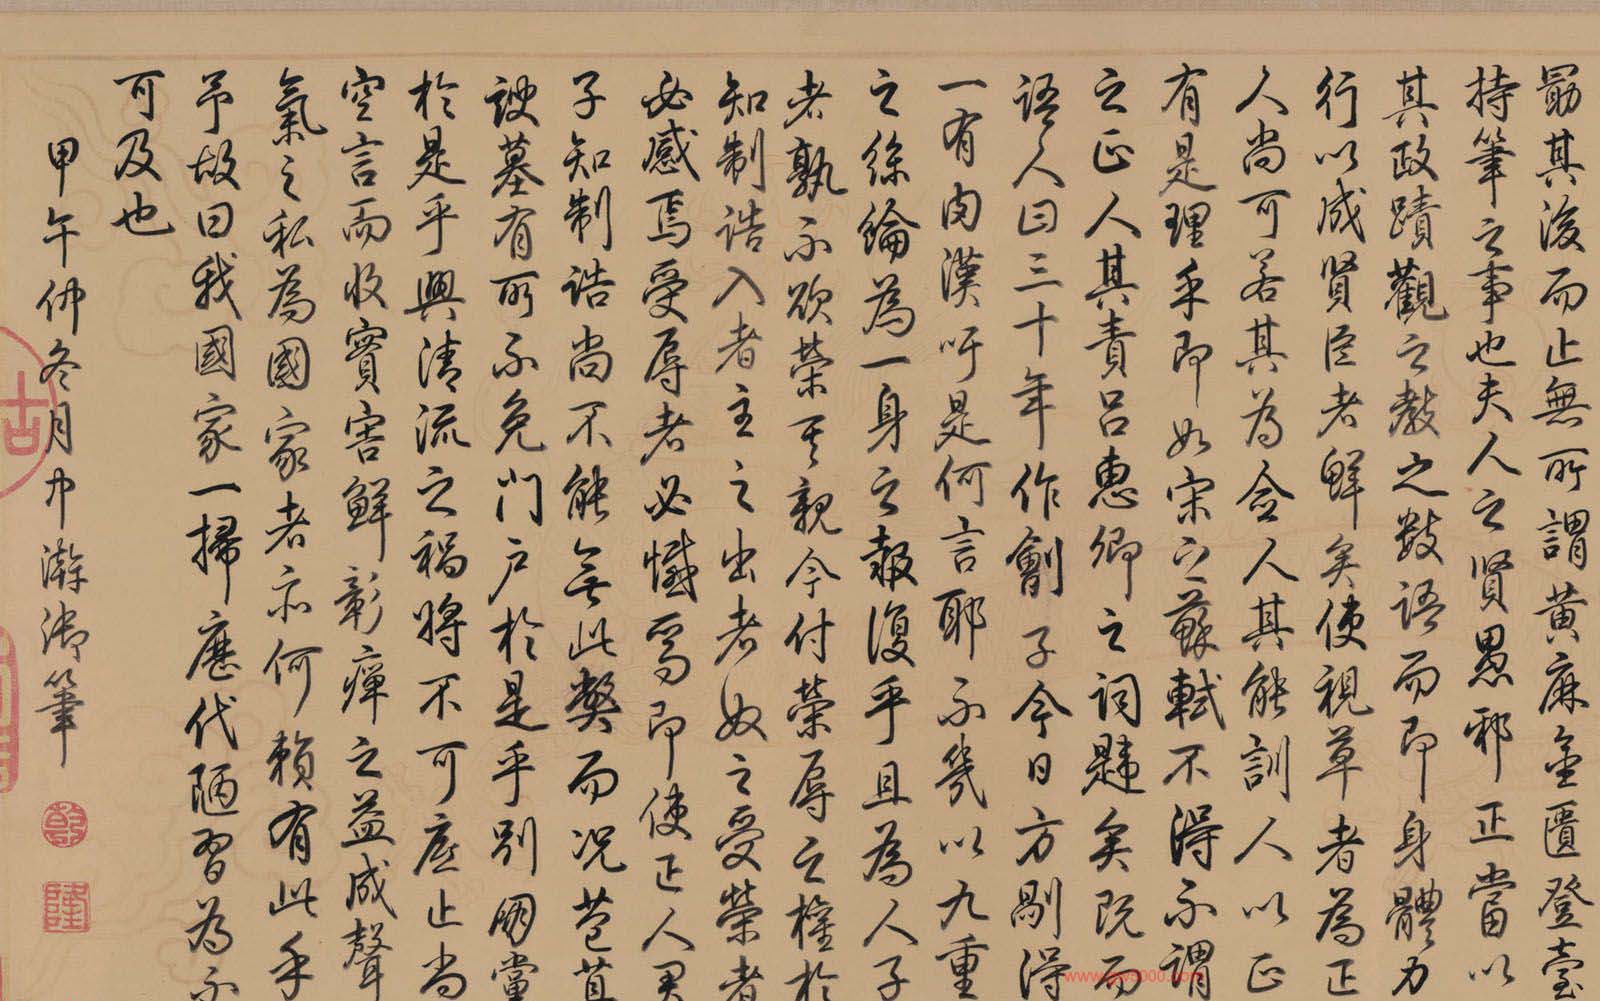 勖其後而止無所謂黄麻金匱登臺
持筆之事也夫人之賢愚邪正當以
其政蹟觀之教之數語而即身體力
行以成賢臣者鮮矣使視草者為正
人尚可若其為僉人其能訓人以正
有是理乎即如宋之蘇軾不得不謂
之正人其責吕惠卿之詞韙矣既而
語人曰三十年作劊子今日方剮得
一有肉漢吁是何言耶不幾以九重
之絲綸為一身之報復乎且為人子
者孰不欲榮其親今付榮辱之權於
知制誥入者主之出者奴之受榮者
必感焉受辱者必憾焉即使正人君
子知制誥尚不能無此弊而况苞苴
諛墓有所不免門户於是乎别朋黨
於是乎興清流之禍將不可底止尚
空言而收實害鮮彰癉之益成聲
氣之私為國家者亦何賴有此乎
予故曰我國家一掃歷代陋習為不
可及也
甲午仲冬月中澣御筆
乾
隆
www.gw5000.com